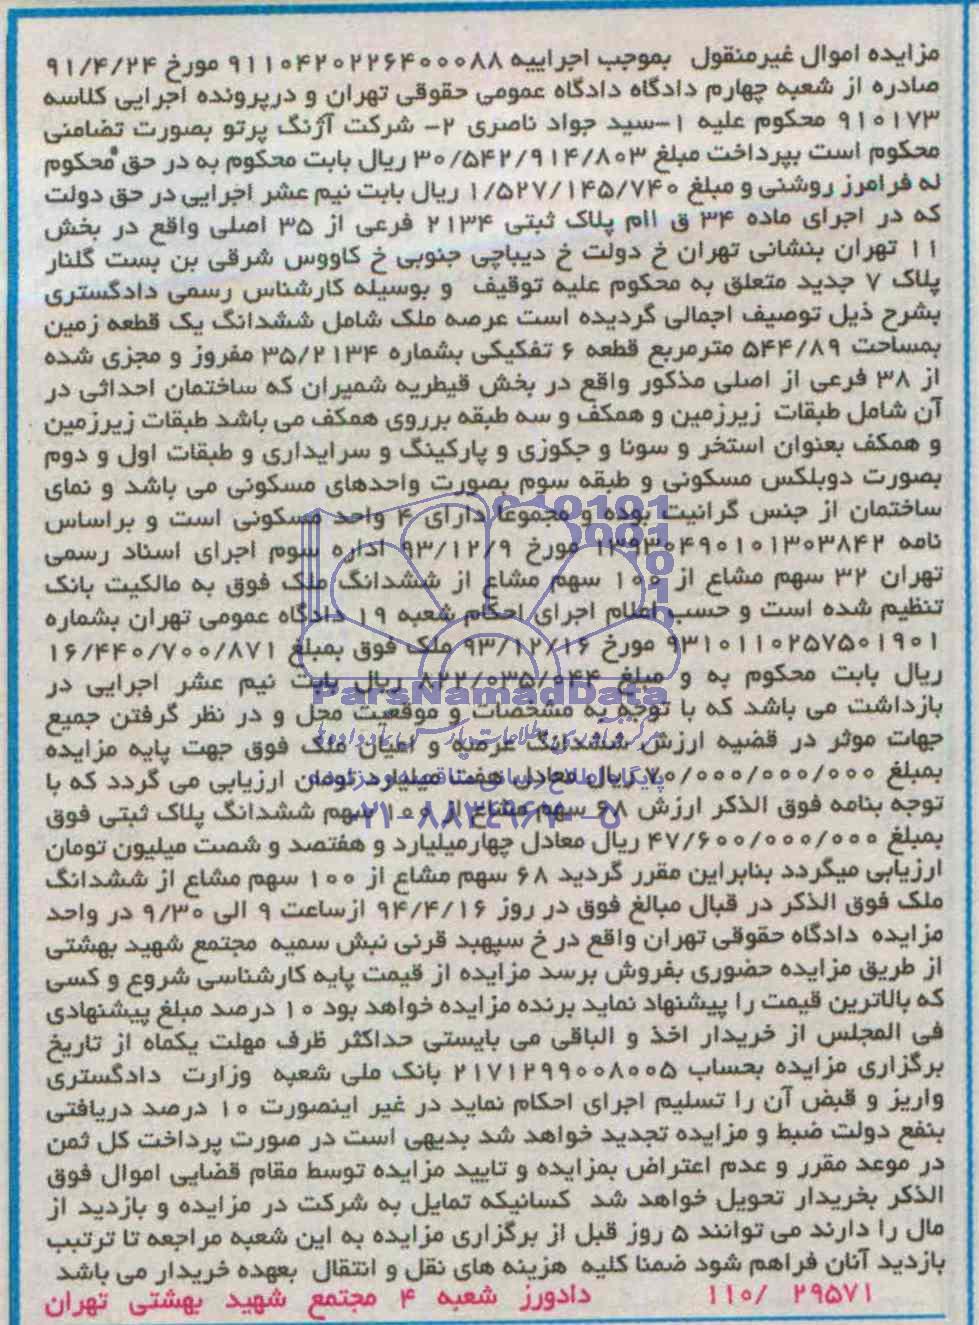 مزایده اموال غیرمنقول بموجب اجراییه ۹۱۱۰۴۲۰۲۲۶۴۰۰۰۸۸ مورخ ۹۱/۴/۲۴
صادره از شعبه چهارم دادگاه دادگاه عمومی حقوقی تهران و درپرونده اجرایی کلاسه
۹۱۰۱۷۳ محکوم علیه ۱-سید جواد ناصری ۲- شرکت آژنگ پرتو بصورت تضامنی
محکوم است بپرداخت مبلغ ۳۰/۵۴۲/۹۱۴/۸۰۳ ریال بابت محکوم به در حق محکوم
له فرامرز روشنی و مبلغ ۱/۵۲۷/۱۴۵/۷۴۰ ریال بابت نیم عشر اجرایی در حق دولت
که در اجرای ماده ۳۴ ق ااام پلاک ثبتی ۲۱۳۴ فرعی از ۳۵ اصلی واقع در بخش
۱۱ تهران بنشانی تهران خ دولت خ دیباچی جنوبی خ کاووس شرقی بن بست گلنار
پلاک ۷ جدید متعلق به محکوم علیه توقیف و بوسیله کارشناس رسمی دادگستری
بشرح ذیل توصیف اجمالی گردیده است عرصه ملک شامل ششدانگ یک قطعه زمین
بمساحت ۵۴۴/۸۹ مترمربع قطعه ۶ تفکیکی بشماره ۳۵/۲۱۳۴ مفروز و مجزی شده
از ۳۸ فرعی از اصلی مذکور واقع در بخش قیطریه شمیران که ساختمان احداثی در
آن شامل طبقات زیرزمین و همکف و سه طبقه برروی همکف می باشد طبقات زیرزمین
و همکف بعنوان استخر و سونا و جکوزی و پارکینگ و سرایداری و طبقات اول و دوم
بصورت دوبلکس مسکونی و طبقه سوم بصورت واحدهای مسکونی می باشد و نمای
ساختمان از جنس گرانیت بوده و مجموعا دارای ۴ واحد مسکونی است و براساس
نامه ۱۳۹۳۰۴۹۰۱۰۱۳۰۳۸۴۲ مورخ ۹۳/۱۲/۹ اداره سوم اجرای اسناد رسمی
تهران ۳۲ سهم مشاع از ۱۰۰ سهم مشاع از ششدانگ ملک فوق به مالکیت بانک
تنظیم شده است و حسب اعلام اجرای احکام شعبه ۱۹ دادگاه عمومی تهران بشماره
۹۳۱۰۱۱۰۲۵۷۵۰۱۹۰۱ مورخ ۹۳/۱۲/۱۶ ملک فوق بمبلغ ۱۶/۴۴۰/۷۰۰/۸۷۱
ریال بابت محکوم به و مبلغ ۸۲۲/۰۳۵/۰۴۴ ریال بابت نیم عشر اجرایی در
بازداشت می باشد که با توجه به مشخصات و موقعیت محل و در نظر گرفتن جمیع
جهات موثر در قضیه ارزش ششدانگ عرصه و اعیان ملک فوق جهت پایه مزایده
بمبلغ ۷۰/۰۰۰/۰۰۰/۰۰۰ ریال معادل هفت میلیارد تومان ارزیابی می گردد که با
توجه بنامه فوق الذکر ارزش ۶۸ سهم مشاع از ۱۰۰ سهم ششدانگ پلاک ثبتی فوق
بمبلغ ۴۷/۶۰۰/۰۰۰/۰۰۰ ریال معادل چهارمیلیارد و هفتصد و شصت میلیون تومان
ارزیابی میگردد بنابراین مقرر گردید ۶۸ سهم مشاع از ۱۰۰ سهم مشاع از ششدانگ
ملک فوق الذکر در قبال مبالغ فوق در روز ۹۴/۴/۱۶ ازساعت ۹ الی ۹/۳۰ در واحد
مزایده دادگاه حقوقی تهران واقع در خ سپهبد قرنی نبش سمیه مجتمع شهید بهشتی
از طریق مزایده حضوری بفروش برسد مزایده از قیمت پایه کارشناسی شروع و کسی
که بالاترین قیمت را پیشنهاد نماید برنده مزایده خواهد بود ۱۰ درصد مبلغ پیشنهادی
فی المجلس از خریدار اخذ و الباقی می بایستی حداکثر ظرف مهلت یکماه از تاریخ
برگزاری مزایده بحساب ۲۱۷۱۲۹۹۰۰۸۰۰۵ بانک ملی شعبه وزارت دادگستری
واریز و قبض آن را تسلیم اجرای احکام نماید در غیر اینصورت ۱۰ درصد دریافتی
بنفع دولت ضبط و مزایده تجدید خواهد شد بدیهی است در صورت پرداخت کل ثمن
در موعد مقرر و عدم اعتراض بمزایده و تایید مزایده توسط مقام قضایی اموال فوق
الذکر بخریدار تحویل خواهد شد کسانیکه تمایل به شرکت در مزایده و بازدید از
مال را دارند می توانند ۵ روز قبل از برگزاری مزایده به این شعبه مراجعه تا ترتبب
بازدید آنان فراهم شود ضمنا کلیه هزینه های نقل و انتقال بعهده خریدار می باشد
۱۱۰/ ۲۹۵۷۱ دادورز شعبه ۴ مجتمع شهید بهشتی تهران
ParsNamadData
۰۲۱-۸۸۳۴۹۶۷۰-۵